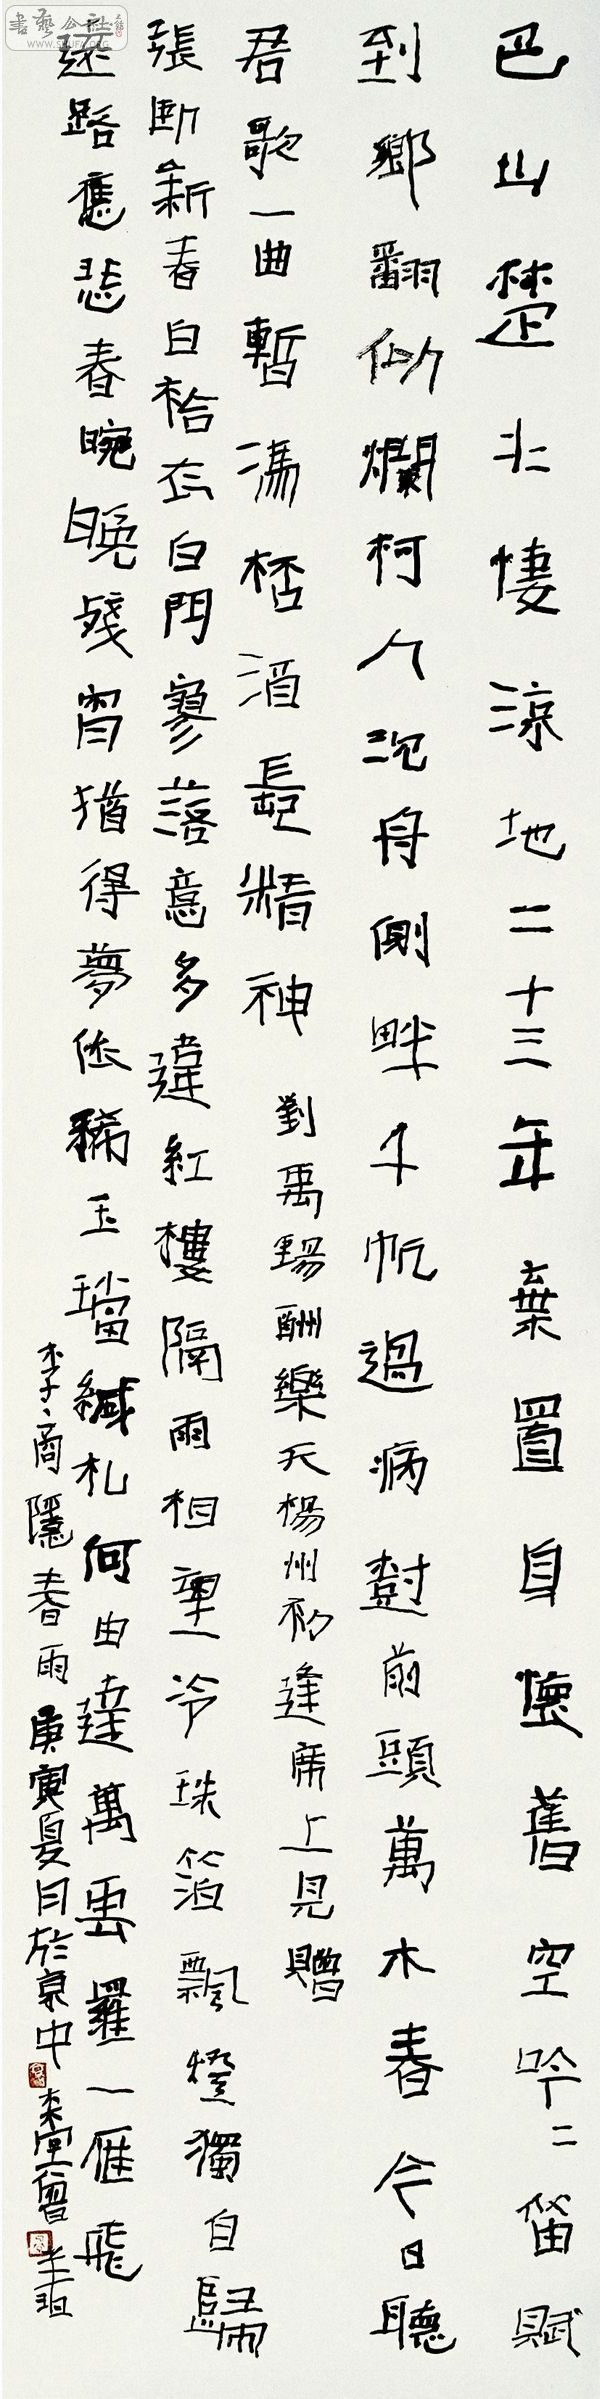 巴山楚水悽涼地二十三年棄置身懷舊空吟二笛賦
到鄉翻似爛柯人沉舟側畔千帆過病樹前頭萬木春今日聽
君歌一曲暫馮桮酒長精神 劉禹錫酬樂天楊州初逢席上見贈
張臥新春白袷衣白門寥落意多違紅樓隔雨相望冷珠箔飄燈獨自歸
遠路應悲春晼晚殘宵猶得夢依稀玉璫緘札何由達萬雲羅一雁飛
李商隱春雨庚寅夏月於泉中
書藝公社
WWW.SHUFA.ORG